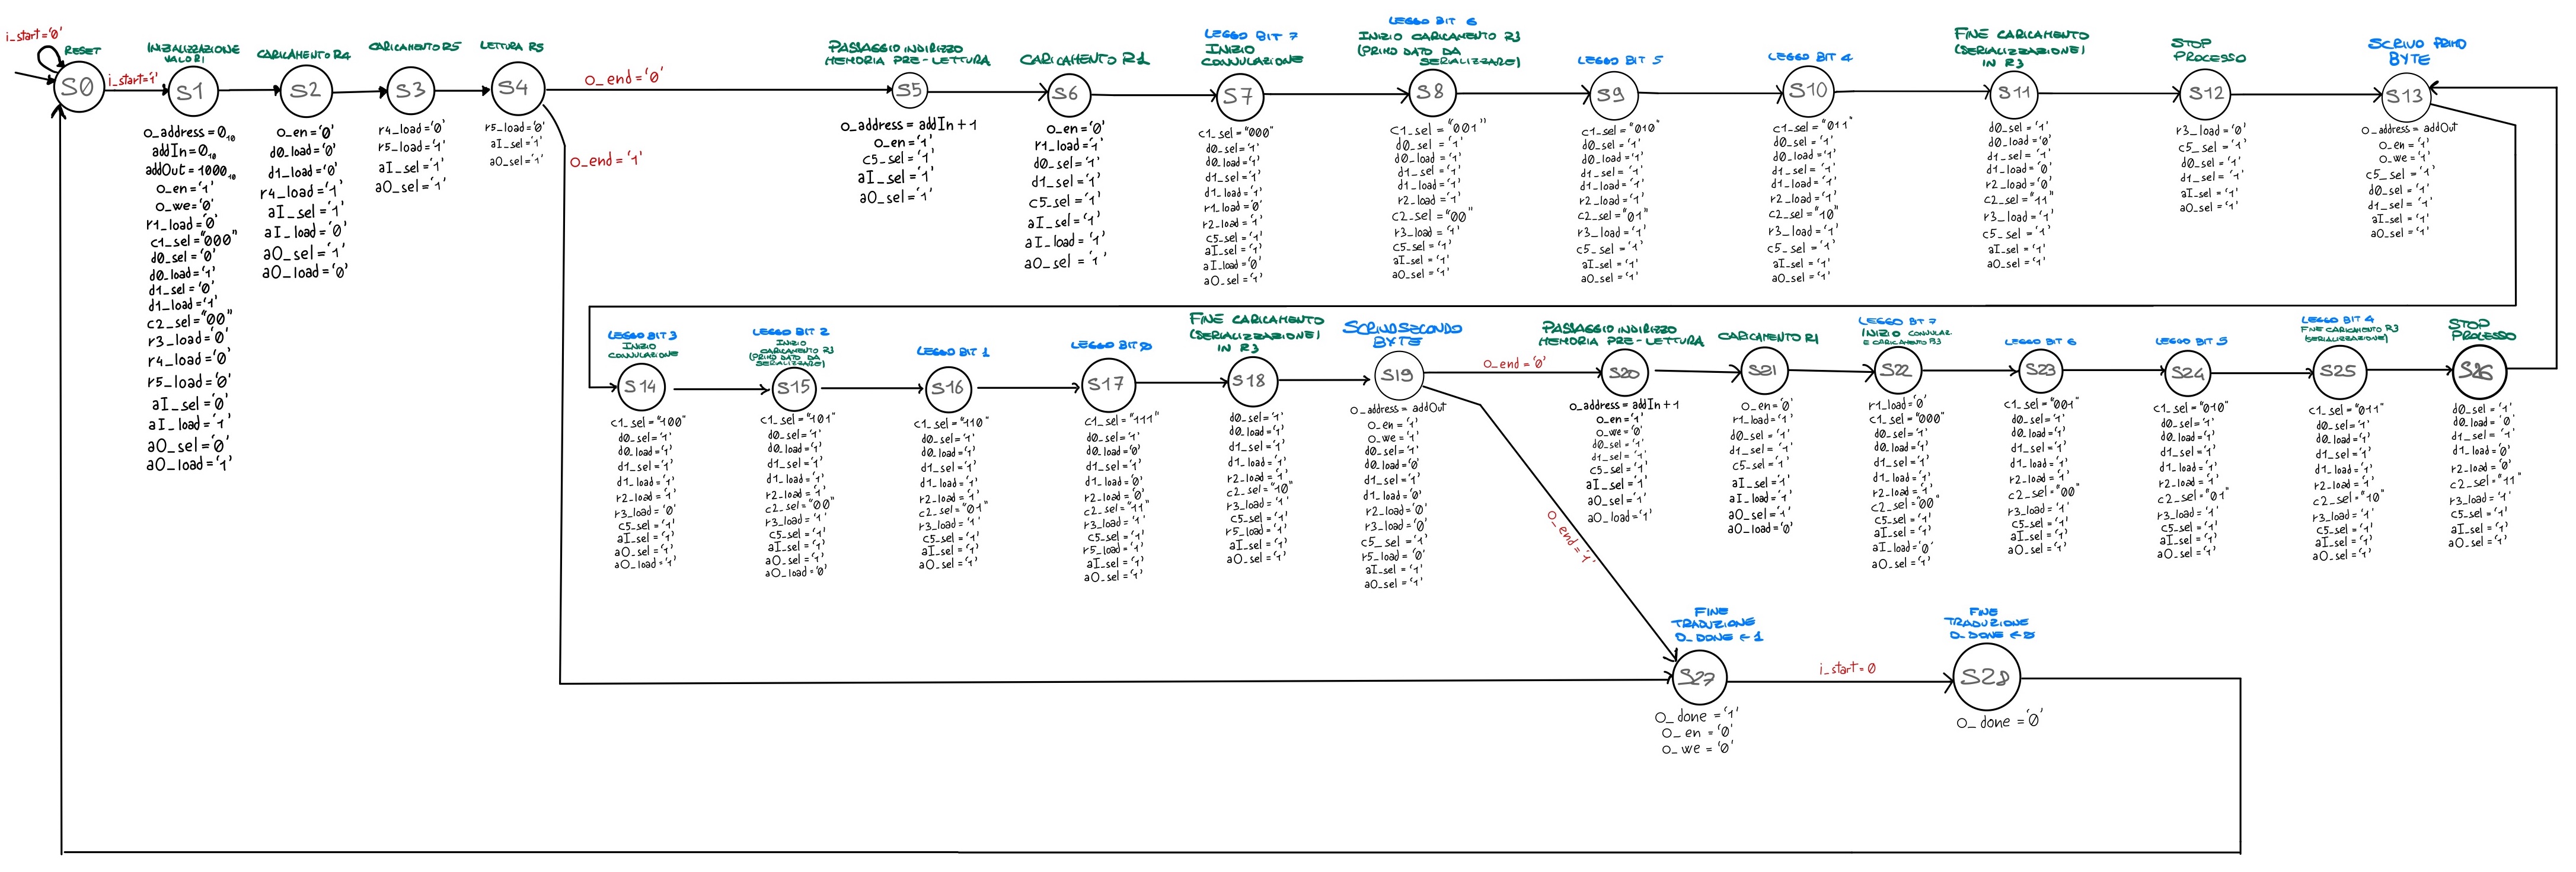 i_start='0'
RESET
S0
i_start='1'
INIZIALIZZAZIONE
VALORI
S1
o_address = 0₁₀
addIn = 0₁₀
addOut = 1000₁₀
o_en = '1'
o_we = '0'
r1_load = '0'
c1_sel = "000"
d0_sel = '0'
d0_load = '1'
d1_sel = '0'
d1_load = '1'
c2_sel = "00"
r3_load = '0'
r4_load = '0'
r5_load = '0'
aI_sel = '0'
aI_load = '1'
aO_sel = '0'
aO_load = '1'
CARICAMENTO R4
S2
o_en = '0'
d0_load = '0'
d1_load = '0'
r4_load = '1'
aI_sel = '1'
aI_load = '0'
aO_sel = '1'
aO_load = '0'
CARICAMENTO R5
S3
r4_load = '0'
r5_load = '1'
aI_sel = '1'
aO_sel = '1'
LETTURA R5
S4
r5_load = '0'
aI_sel = '1'
aO_sel = '1'
o_end = '0'
o_end = '1'
PASSAGGIO INDIRIZZO
MEMORIA PRE-LETTURA
S5
o_address = addIn + 1
o_en = '1'
c5_sel = '1'
aI_sel = '1'
aO_sel = '1'
CARICAMENTO R1
S6
o_en = '0'
r1_load = '1'
d0_sel = '1'
d1_sel = '1'
c5_sel = '1'
aI_sel = '1'
aI_load = '1'
aO_sel = '1'
LEGGO BIT 7
INIZIO
CONVULAZIONE
S7
c1_sel = "000"
d0_sel = '1'
d0_load = '1'
d1_sel = '1'
d1_load = '1'
r1_load = '0'
r2_load = '1'
c5_sel = '1'
aI_sel = '1'
aI_load = '0'
aO_sel = '1'
LEGGO BIT 6
INIZIO CARICAMENTO R3
(PRIMO DATO DA
SERIALIZZARE)
S8
c1_sel = "001"
d0_sel = '1'
d0_load = '1'
d1_sel = '1'
d1_load = '1'
r2_load = '1'
c2_sel = "00"
r3_load = '1'
c5_sel = '1'
aI_sel = '1'
aO_sel = '1'
LEGGO BIT 5
S9
c1_sel = "010"
d0_sel = '1'
d0_load = '1'
d1_sel = '1'
d1_load = '1'
r2_load = '1'
c2_sel = "01"
r3_load = '1'
c5_sel = '1'
aI_sel = '1'
aO_sel = '1'
LEGGO BIT 4
S10
c1_sel = "011"
d0_sel = '1'
d0_load = '1'
d1_sel = '1'
d1_load = '1'
r2_load = '1'
c2_sel = "10"
r3_load = '1'
c5_sel = '1'
aI_sel = '1'
aO_sel = '1'
FINE CARICAMENTO
(SERIALIZZAZIONE)
IN R3
S11
d0_sel = '1'
d0_load = '0'
d1_sel = '1'
d1_load = '0'
r2_load = '0'
c2_sel = "11"
r3_load = '1'
c5_sel = '1'
aI_sel = '1'
aO_sel = '1'
STOP
PROCESSO
S12
r3_load = '0'
c5_sel = '1'
d0_sel = '1'
d1_sel = '1'
aI_sel = '1'
aO_sel = '1'
SCRIVO PRIMO
BYTE
S13
o_address = addOut
o_en = '1'
o_we = '1'
c5_sel = '1'
d0_sel = '1'
d1_sel = '1'
aI_sel = '1'
aO_sel = '1'
LEGGO BIT 3
INIZIO
CONVULAZIONE
S14
c1_sel = "100"
d0_sel = '1'
d0_load = '1'
d1_sel = '1'
d1_load = '1'
r2_load = '1'
r3_load = '0'
c5_sel = '1'
aI_sel = '1'
aO_sel = '1'
aO_load = '1'
LEGGO BIT 2
INIZIO
CARICAMENTO R3
(PRIMO DATO DA
SERIALIZZARE)
S15
c1_sel = "101"
d0_sel = '1'
d0_load = '1'
d1_sel = '1'
d1_load = '1'
r2_load = '1'
c2_sel = "00"
r3_load = '1'
c5_sel = '1'
aI_sel = '1'
aO_sel = '1'
aO_load = '0'
LEGGO BIT 1
S16
c1_sel = "110"
d0_sel = '1'
d0_load = '1'
d1_sel = '1'
d1_load = '1'
r2_load = '1'
c2_sel = "01"
r3_load = '1'
c5_sel = '1'
aI_sel = '1'
aO_sel = '1'
LEGGO BIT 0
S17
c1_sel = "111"
d0_sel = '1'
d0_load = '0'
d1_sel = '1'
d1_load = '0'
r2_load = '0'
c2_sel = "11"
r3_load = '1'
c5_sel = '1'
r5_load = '1'
aI_sel = '1'
aO_sel = '1'
FINE CARICAMENTO
(SERIALIZZAZIONE)
IN R3
S18
d0_sel = '1'
d0_load = '1'
d1_sel = '1'
d1_load = '1'
r2_load = '1'
c2_sel = "10"
r3_load = '1'
c5_sel = '1'
r5_load = '1'
aI_sel = '1'
aO_sel = '1'
SCRIVO SECONDO
BYTE
S19
o_address = addOut
o_en = '1'
o_we = '1'
d0_sel = '1'
d0_load = '0'
d1_sel = '1'
d1_load = '0'
r2_load = '0'
r3_load = '0'
c5_sel = '1'
r5_load = '0'
aI_sel = '1'
aO_sel = '1'
o_end = '0'
o_end = '1'
PASSAGGIO INDIRIZZO
MEMORIA PRE-LETTURA
S20
o_address = addIn + 1
o_en = '1'
o_we = '0'
d0_sel = '1'
d1_sel = '1'
c5_sel = '1'
aI_sel = '1'
aO_sel = '1'
aO_load = '1'
CARICAMENTO R1
S21
o_en = '0'
r1_load = '1'
d0_sel = '1'
d1_sel = '1'
c5_sel = '1'
aI_sel = '1'
aI_load = '1'
aO_sel = '1'
aO_load = '0'
LEGGO BIT 7
INIZIO CONVULAZ.
E CARICAMENTO R3
S22
r1_load = '0'
c1_sel = "000"
d0_sel = '1'
d0_load = '1'
d1_sel = '1'
d1_load = '1'
r2_load = '1'
c2_sel = "00"
c5_sel = '1'
aI_sel = '1'
aI_load = '0'
aO_sel = '1'
LEGGO BIT 6
S23
c1_sel = "001"
d0_sel = '1'
d0_load = '1'
d1_sel = '1'
d1_load = '1'
r2_load = '1'
c2_sel = "00"
r3_load = '1'
c5_sel = '1'
aI_sel = '1'
aO_sel = '1'
LEGGO BIT 5
S24
c1_sel = "010"
d0_sel = '1'
d0_load = '1'
d1_sel = '1'
d1_load = '1'
r2_load = '1'
c2_sel = "01"
r3_load = '1'
c5_sel = '1'
aI_sel = '1'
aO_sel = '1'
LEGGO BIT 4
FINE CARICAMENTO R3
(SERIALIZZAZIONE)
S25
c1_sel = "011"
d0_sel = '1'
d0_load = '1'
d1_sel = '1'
d1_load = '1'
r2_load = '1'
c2_sel = "10"
r3_load = '1'
c5_sel = '1'
aI_sel = '1'
aO_sel = '1'
STOP
PROCESSO
S26
d0_sel = '1'
d0_load = '0'
d1_sel = '1'
d1_load = '0'
r2_load = '0'
c2_sel = "11"
r3_load = '1'
c5_sel = '1'
aI_sel = '1'
aO_sel = '1'
FINE
TRADUZIONE
O_DONE ← 1
S27
o_done = '1'
o_en = '0'
o_we = '0'
i_start = 0
FINE
TRADUZIONE
O_DONE ← 0
S28
o_done = '0'